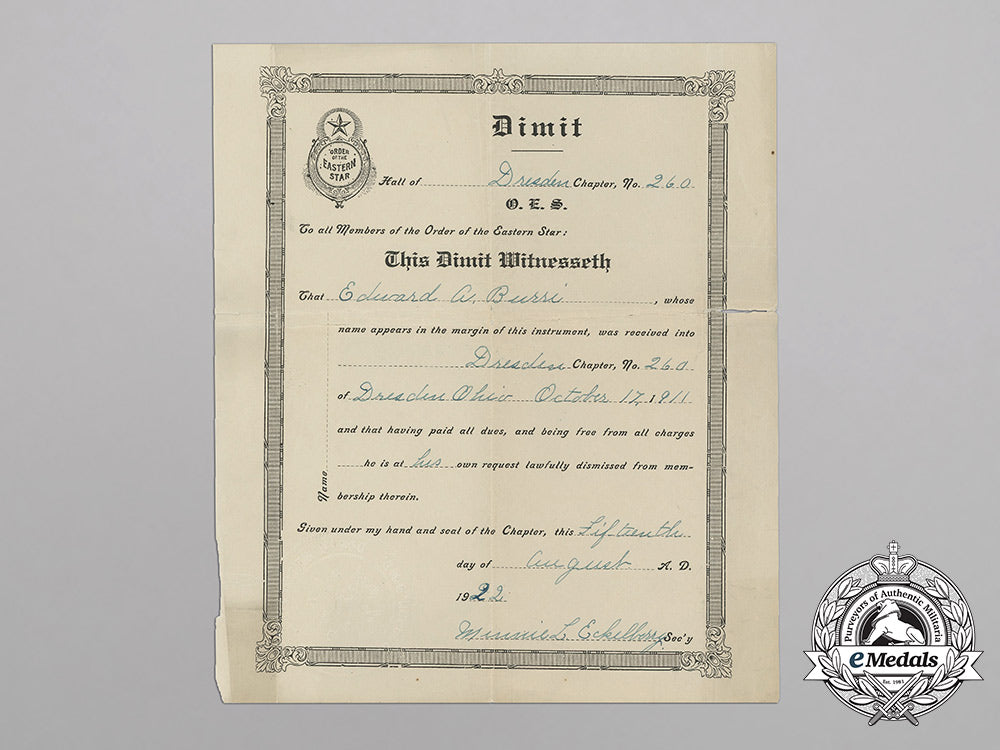 Dimit
ORDER
OF THE
EASTERN
STAR
Hall of Dresden Chapter, No. 260
O. E. S.
To all Members of the Order of the Eastern Star:
This Dimit Witnesseth
That Edward A. Burri, whose
name appears in the margin of this instrument, was received into
Dresden Chapter, No. 260
of Dresden Ohio October 17, 1911
and that having paid all dues, and being free from all charges
he is at his own request lawfully dismissed from mem-
bership therein.
Name
Given under my hand and seal of the Chapter, this Fifteenth
day of August A. D.
1922
Minnie L. Eckelberry Sec'y
Purveyors of Authentic Militaria
eMedals
Est. 1981